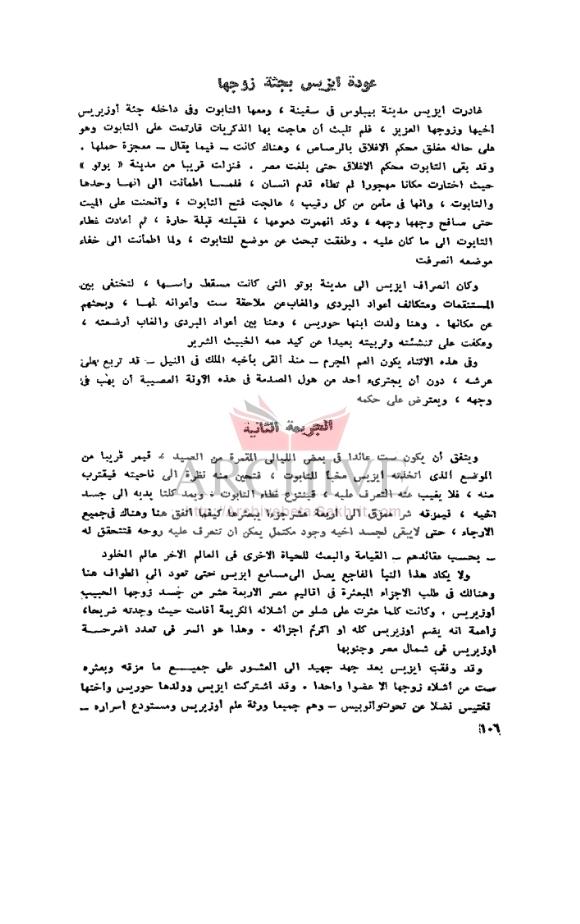 عودة ايزيس بجثة زوجها
غادرت ايزيس مدينة بيبلوس فى سفينة ، ومعها التابوت وفى داخله جثة أوزيريس
أخيها وزوجها العزيز ، فلم تلبث أن هاجت بها الذكريات فارتمت على التابوت وهو
على حاله مغلق محكم الاغلاق بالرصاص ، وهناك كانت ــ فيما يقال ــ معجزة حملها .
وقد بقى التابوت محكم الاغلاق حتى بلغت مصر . فنزلت قريبا من مدينة « بوتو »
حيث اختارت مكانا مهجورا لم تطأه قدم انسان ، فلمــا اطمأنت الى انهــا وحدها
والتابوت ، وانها فى مأمن من كل رقيب ، عالجت فتح التابوت ، وانحنت على الميت
حتى صافح وجهها وجهه ، وقد انهمرت دموعها ، فقبلته قبلة حارة ، ثم أعادت غطاء
التابوت الى ما كان عليه . وطفقت تبحث عن موضع للتابوت ، ولما اطمأنت الى خفاء
موضعه انصرفت
وكان انصراف ايزيس الى مدينة بوتو التى كانت مسقط رأســها ، لتختفى بين
المستنقعات ومتكاثف أعواد البردى والغاب عن ملاحقة ست وأعوانه لهــا ، وبحثهم
عن مكانها . وهنا ولدت ابنها حوريس ، وهنا بين أعواد البردى والغاب أرضعته ،
وعكفت على تنشئته وتربيته بعيدا عن كيد عمه الخبيث الشرير
وفى هذه الاثناء يكون العم المجرم ــ منذ ألقى بأخيه الملك فى النيل ــ قد تربع على
عرشه ، دون أن يجترىء أحد من هول الصدمة فى هذه الآونة العصيبة أن يهب فى
وجهه ، ويعترض على حكمه
الجريمة الثانية
ويتفق أن يكون ست عائدا فى بعض الليالى المقمرة من الصيد ، فيمر قريبا من
الموضع الذى اتخذته ايزيس مخبأ للتابوت ، فتحين منه نظرة الى ناحيته فيقترب
منه ، فلا يغيب عنه التعرف عليه ، فينتزع غطاء التابوت . ويمد كلتا يديه الى جسد
اخيه ، فيمزقه شر ممزق الى أربعة عشر جزءا يبعثرها كيفما اتفق هنا وهناك فى جميع
الارجاء ، حتى لايبقى لجسد اخيه وجود مكتمل يمكن ان تتعرف عليه روحه فتتحقق له
ــ بحسب عقائدهم ــ القيامة والبعث للحياة الاخرى فى العالم الآخر عالم الخلود
ولا يكاد هذا النبأ الفاجع يصل الى مسامع ايزيس حتى تعود الى الطواف هنا
وهنالك فى طلب الاجزاء المبعثرة فى اقاليم مصر الاربعة عشر من جسد زوجها الحبيب
أوزيريس . وكانت كلما عثرت على شلو من أشلائه الكريمة أقامت حيث وجدته ضريحا،
زاعمة انه يضم أوزيريس كله او اكرم اجزائه . وهذا هو السر فى تعدد اضرحــة
اوزيريس فى شمال مصر وجنوبها
وقد وفقت ايزيس بعد جهد جهيد الى العثــور على جميــع ما مزقه وبعثره
ست من أشلاء زوجها الا عضوا واحدا . وقد اشتركت ايزيس وولدها حوريس وأختها
نفتيس فضلا عن تحوت وأنوبيس ــ وهم جميعا ورثة علم أوزيريس ومستودع أسراره ــ
١٠٦
ARCHIVE
http://Archivebeta.Sakhrit.com